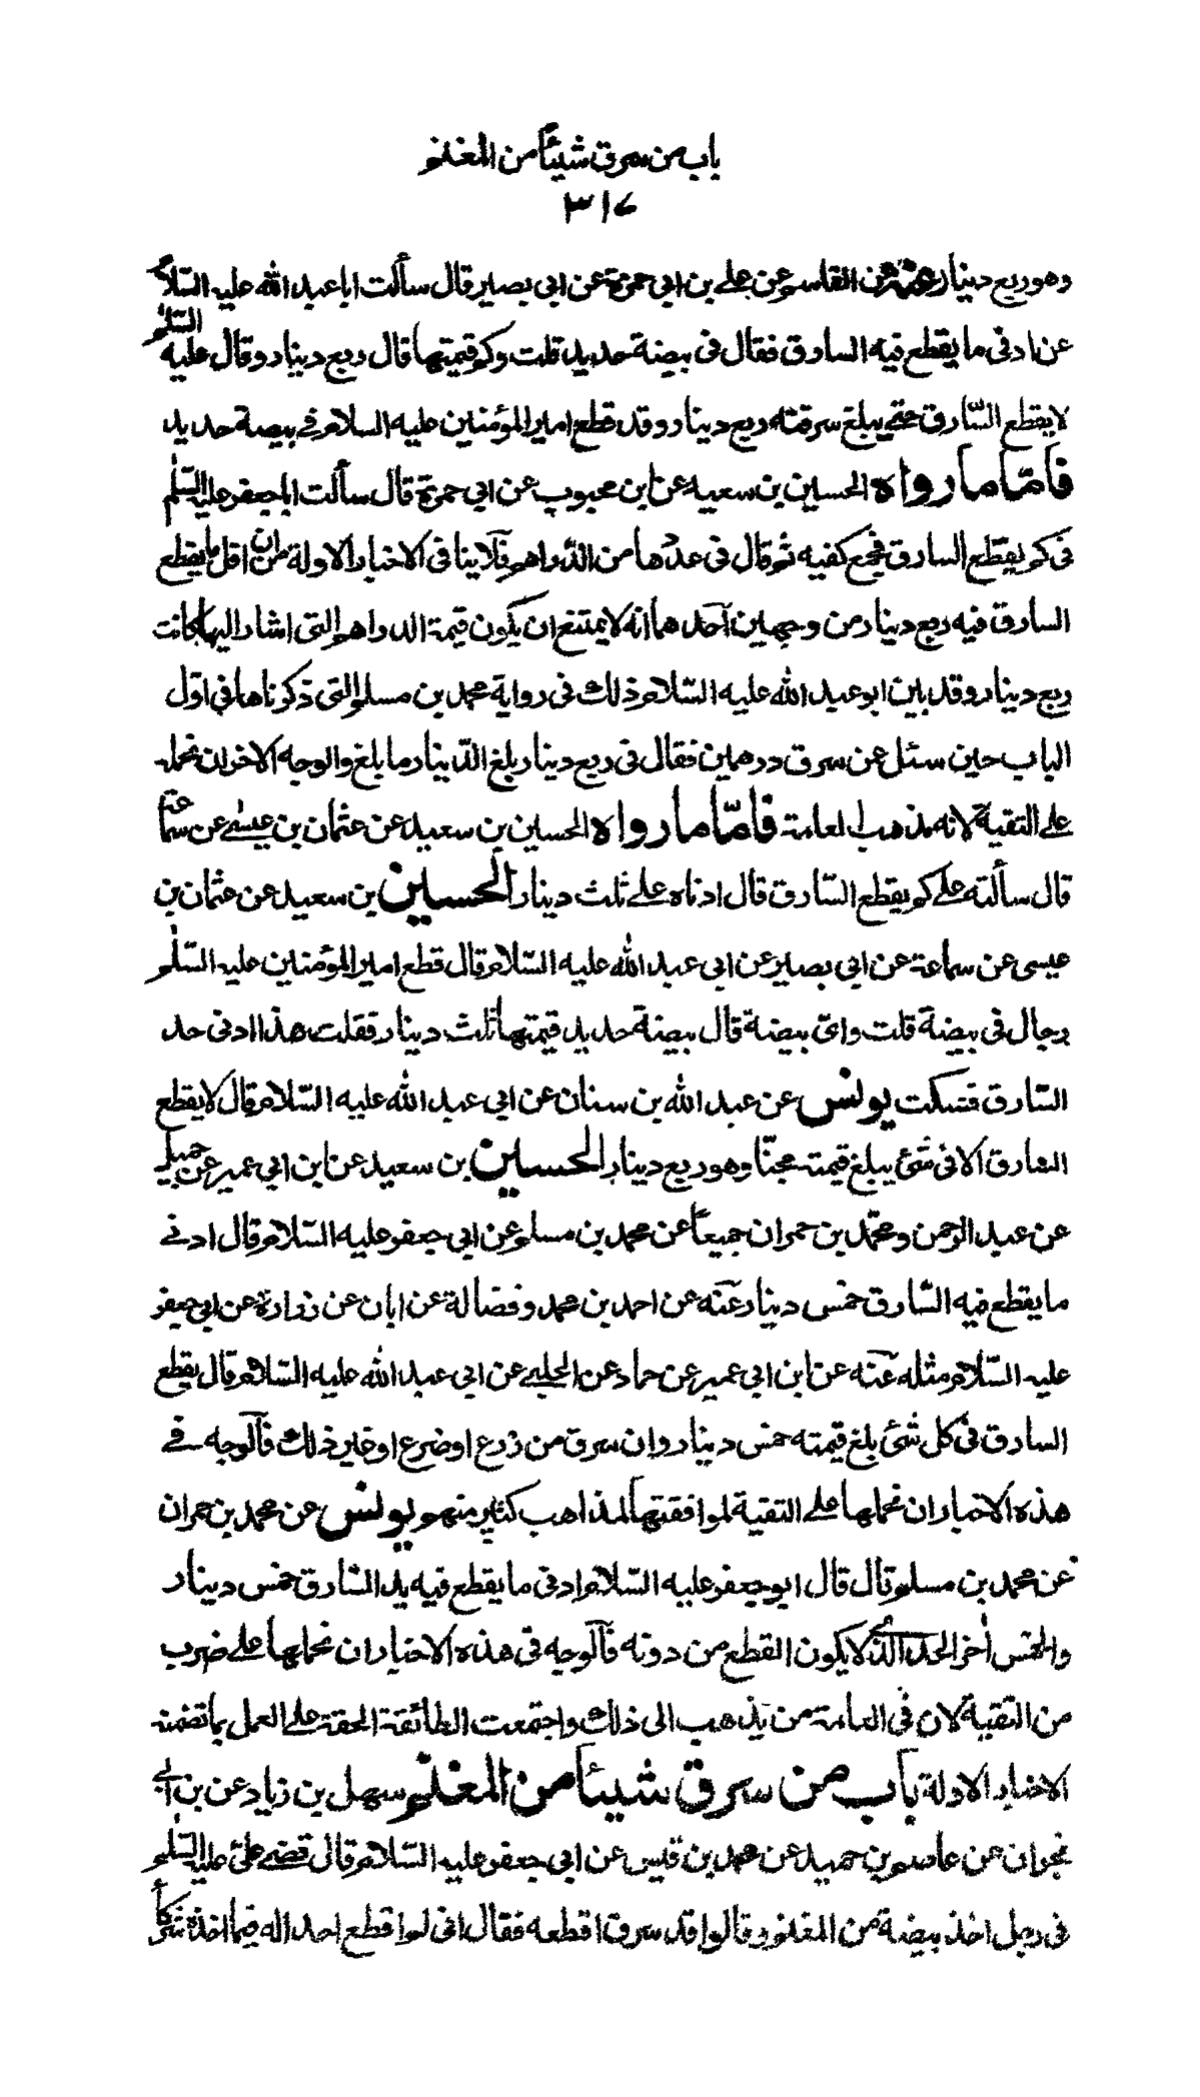 باب من سرق شيئاً من المغنم
٣١٧
وهو ربع دينار عنه عن القاسم عن علي بن ابي حمزة عن ابي بصير قال سألت ابا عبد الله عليه السّلام
عن ادنى ما يقطع فيه السارق فقال فى بيضة حديد قلت وكم قيمتها قال ربع دينار وقال عليه السّلم
لا يقطع السّارق حتى يبلغ سرقته ربع دينار وقد قطع امير المؤمنين عليه السلام فى بيضة حديد
فامّا ما رواه الحسين بن سعيد عن ابن محبوب عن ابي حمزة قال سألت ابا جعفر عليه السّلم
فى كم يقطع السارق فجمع كفيه ثم قال فى عددها من الدّراهم فلا ينافى الاخبار الاولة من ان اقل ما يقطع
السارق فيه ربع دينار من وجهين احدهما انه لا يمتنع ان يكون قيمة الدراهم التى اشار اليها كانت
ربع دينار وقد بين ابو عبد الله عليه السّلام ذلك فى رواية محمد بن مسلم التى ذكرناها فى اوّل
الباب حين سئل عن سرق درهمين فقال فى ربع دينار بلغ الدّينار ما بلغ والوجه الاخر ان نحمله
على التقية لانه مذهب العامة فامّا ما رواه الحسين بن سعيد عن عثمان بن عيسى عن سماعة
قال سألته على كم يقطع السّارق قال ادناه على ثلث دينار الحسين بن سعيد عن عثمان بن
عيسى عن سماعة عن ابي بصير عن ابي عبد الله عليه السّلام قال قطع امير المؤمنين عليه السّلم
رجال فى بيضة قلت واىّ بيضة قال بيضة حديد قيمتها ثلث دينار فقلت هذا ادنى حد
السّارق فسكت يونس عن عبد الله بن سنان عن ابي عبد الله عليه السّلام قال لا يقطع
السارق الا فى شئ يبلغ قيمته مجنّا وهو ربع دينار الحسين بن سعيد عن ابن ابي عمير عن جميل
عن عبد الرحمن ومحمّد بن حمران جميعاً عن محمد بن مسلم عن ابي جعفر عليه السّلام قال ادنى
ما يقطع فيه السّارق خمس دينار عنه عن احمد بن محمد وفضالة عن ابان عن زرارة عن ابي جعفر
عليه السّلام مثله عنه عن ابن ابي عمير عن حماد عن الحلبي عن ابي عبد الله عليه السّلام قال يقطع
السارق فى كل شئ بلغ قيمته خمس دينار وان سرق من زرع او ضرع او غير ذلك فالوجه فى
هذه الاخبار ان نحملها على التقية لموافقتها لمذاهب كثير منهم يونس عن محمد بن حمران
عن محمد بن مسلم قال قال ابو جعفر عليه السّلام ادنى ما يقطع فيه يد السّارق خمس دينار
والخمس اخر الحد الذى لا يكون القطع من دونه فالوجه فى هذه الاخبار ان نحملها على ضرب
من التقية لان فى العامة من يذهب الى ذلك واجتمعت الطائفة المحقة على العمل بما تضمنه
الاخبار الاولة باب من سرق شيئاً من المغنم سهل بن زياد عن بن ابي
نجران عن عاصم بن حميد عن محمد بن قيس عن ابي جعفر عليه السّلام قال قضى علىّ عليه السّلم
فى رجل اخذ بيضة من المغنم وقالوا قد سرق اقطعه فقال انى لم اقطع احدا له فيما اخذ شركاً